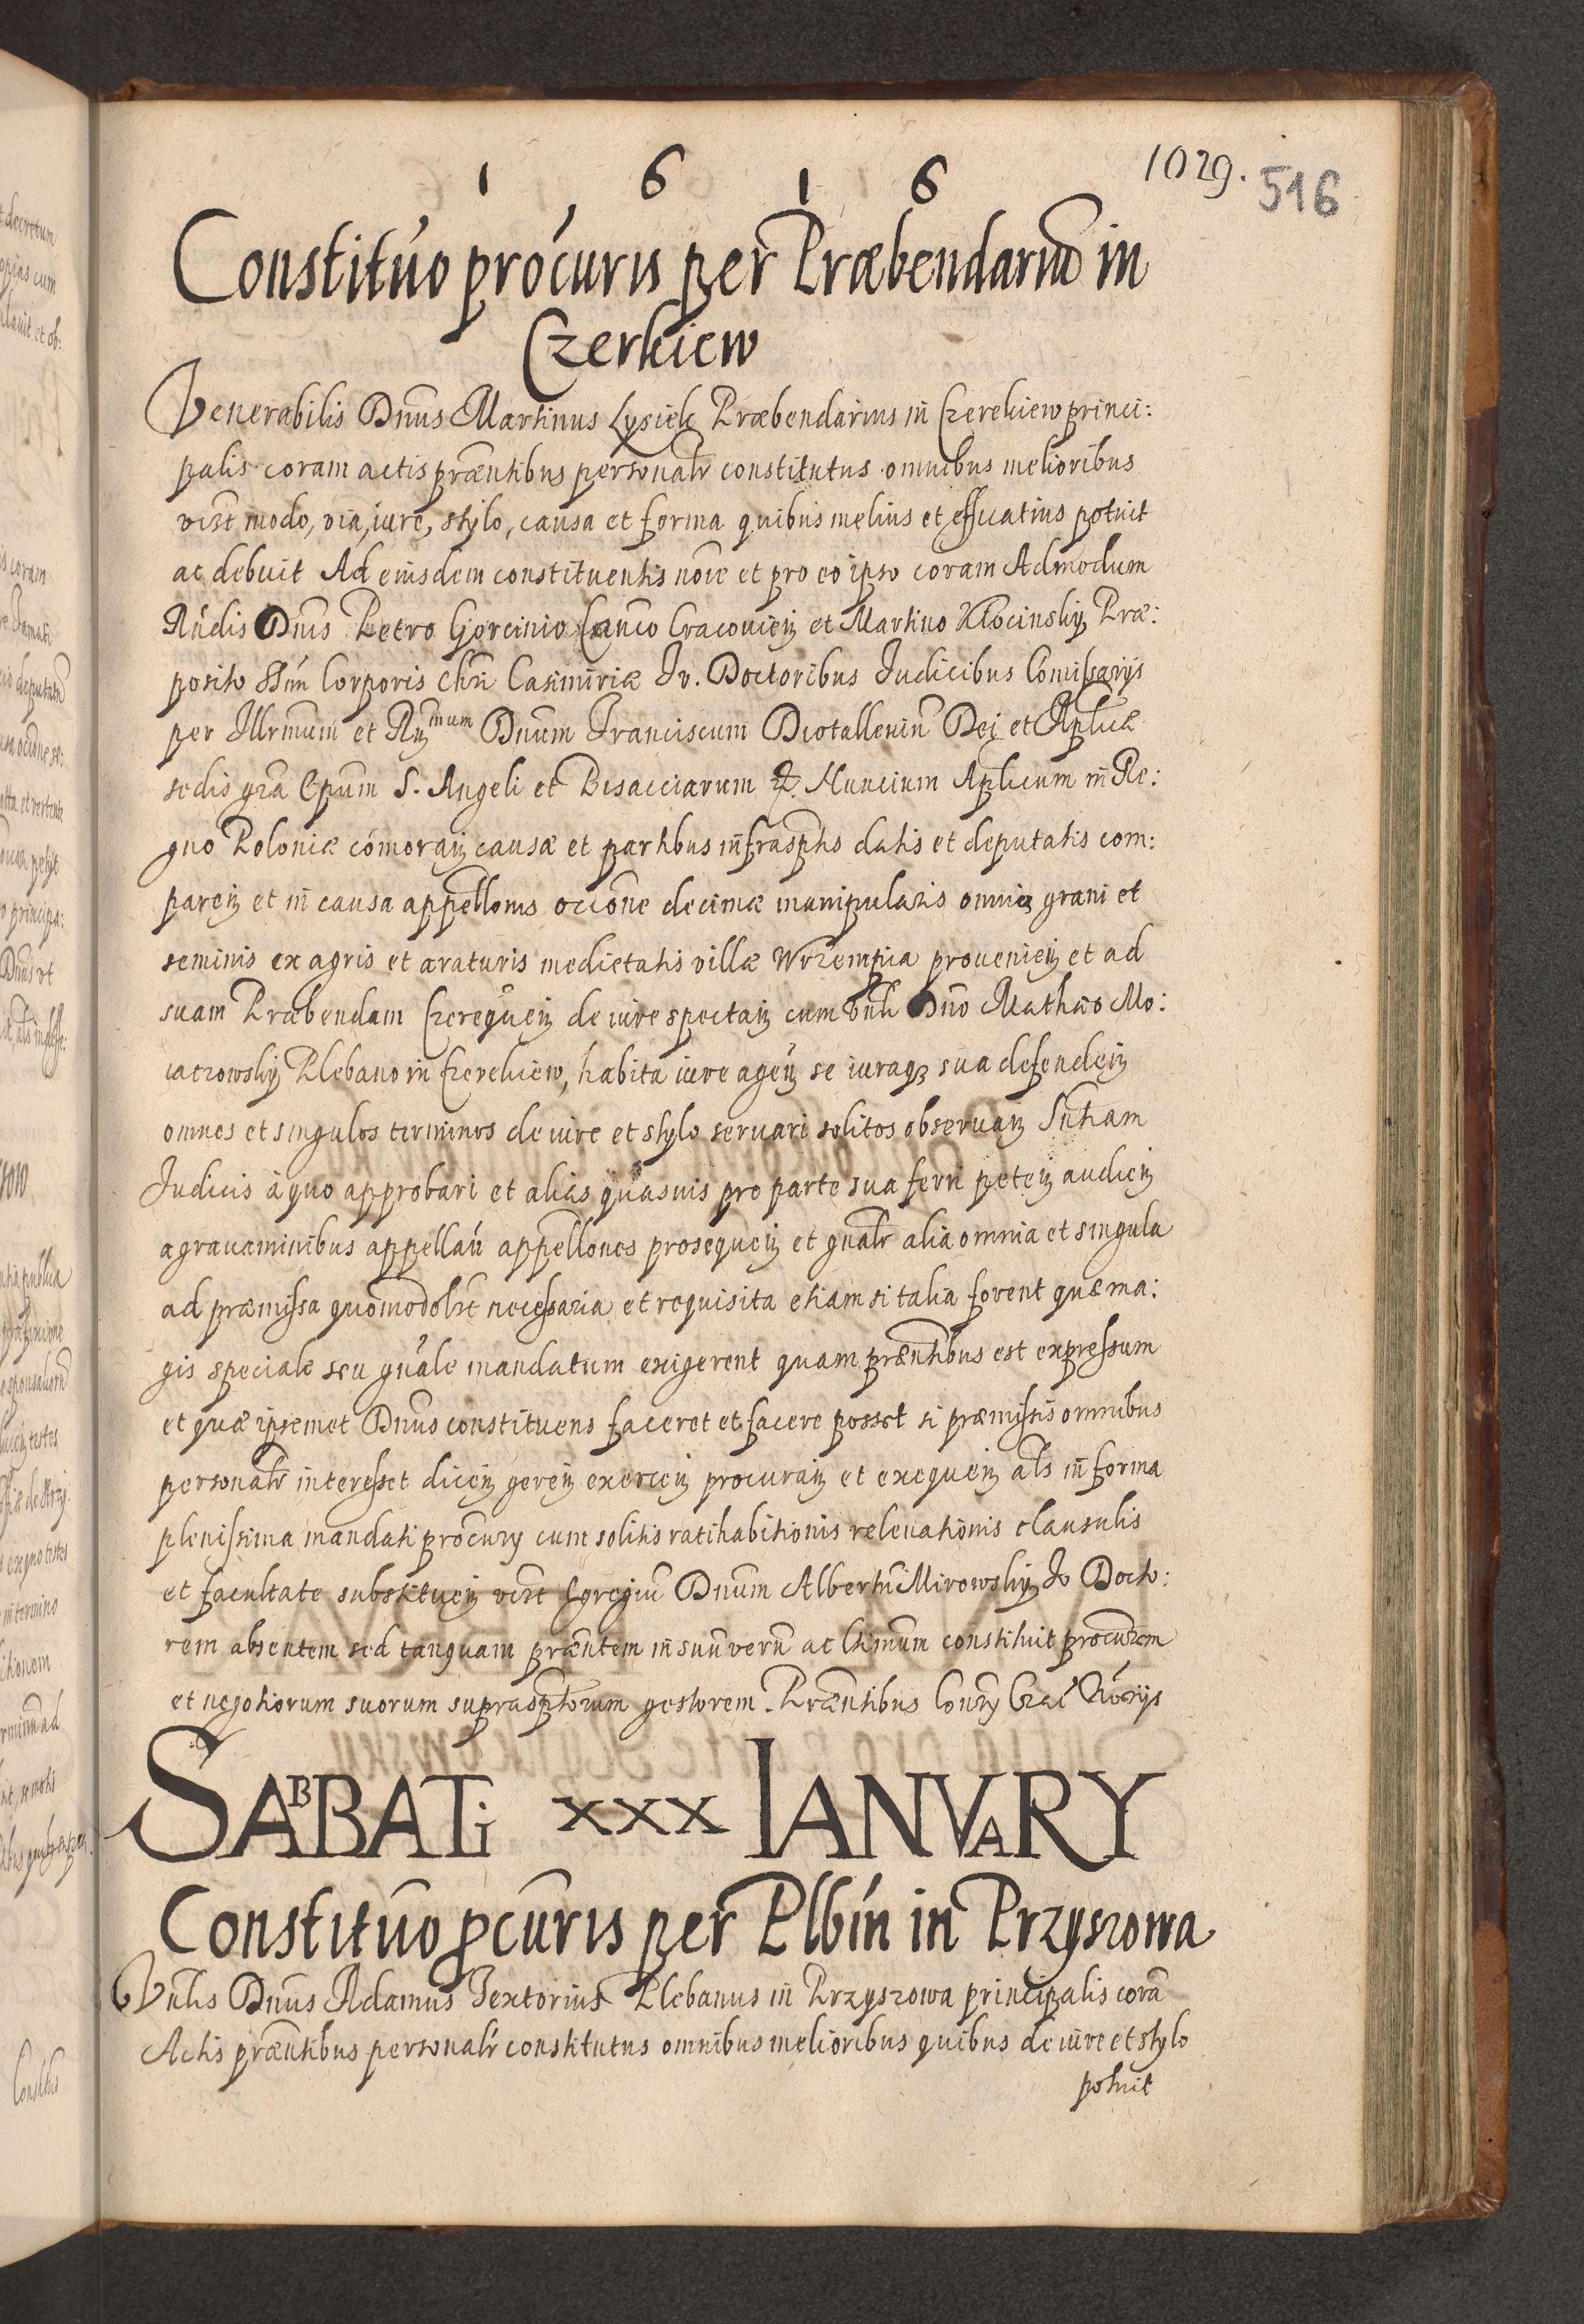 1 6 1 6
1029. 516
Constituo procuris per Præbendariũ in
Czerkiew
Venerabilis Dnus Martinus Lysiek Præbendarius in Czerekiew princi:
palis coram actis præntibus personalr constitutus omnibus melioribus
modo, via, iure, stylo, causa et forma quibus melius et efficatius potuit
ac debuit Ad eiusdem constituentis noīe et pro eo ipso coram Admodum
Rndis Dnis Petro Gorcinio Canco Cracovieñ et Martino Kłocinsky Præ:
posito SSmi Corporis Chri Casimiriæ Iv. Doctoribus Iudicibus Comissarijs
per Illrmum et Rmum Dnum Franciscum Diotalleniũ Dei et Aplicæ
sedis gra Epum S. Angeli et Bisacciarum &. Nuncium Aplicum in Re:
gno Poloniæ comorañ causæ et partibus infrasptis datis et deputatis com:
pareñ et in causa appellonis occõne decimæ manipularis omnis grani et
seminis ex agris et araturis medietatis villæ Wrzempia prouenieñ et ad
suam Præbendam Czerequeñ de iure spectañ cum Vnli Dno Mathæo Mo:
iaczowsky Plebano in Czerekiew, habita iure ageñ se iuraq3 sua defendeñ
omnes et singulos terminos de iure et stylo servari solitos observañ Sntiam
Iudicis à quo approbari et alias quasuis pro parte sua ferri peteñ audieñ
agrauaminibus appellañ appellones prosequeñ et gnalr alia omnia et singula
ad præmissa quomodolzt necessaria et requisita etiam si talia forent quæ ma:
gis speciale seu gnale mandatum exigerent quam præntibus est expressum
et quæ ipsemet Dnus constituens faceret et facere posset si præmissis omnibus
personalr interesset diceñ gereñ exerceñ procurañ et exequeñ als in forma
plenissima mandati procury cum solitis ratihabitionis releuationis clausulis
et facultate substitueñ Egregiũ Dnum Albertũ Mirowsky Iv Docto:
rem absentem sed tanquam præntem in suũ verũ ac ltimum constituit procurem
et negotiorum suorum suprasptorum gestorem. Præntibus Conry Crac Notrijs
SABBATI XXX IANVARY
Constituo pcuris per Plbin in Przyszowa
Vnlis Dnus Adamus Textorius Plebanus in Przyszowa principalis corã
Actis præntibus personalr constitutus omnibus melioribus quibus de iure et stylo
potuit